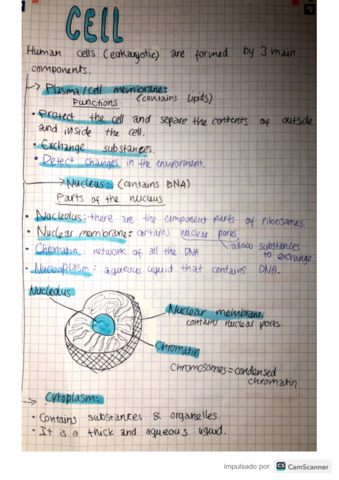 CELL
Human cells (eukaryotic) are formed by 3 main
components.
→ Plasma/cell membrane:
Functions (contains lipids)
• Protect the cell and separe the contents of outside
and inside the cell.
• Exchange substances.
• Detect changes in the environment.
→ Nucleus: (contains DNA)
Parts of the nucleus
• Nucleolus: there are the component parts of ribosomes
• Nuclear membrane: contains nuclear pores
allow substances
to exchange
• Chromatin: network of all the DNA
• Nucleoplasm: aqueous liquid that contains DNA.
Nucleolus
Nuclear membrane
contains nuclear pores
Chromatin
Chromosomes = condensed
chromatin
→ Cytoplasm:
• Contains substances & organelles.
• It is a thick and aqueous liquid.
impulsado por CS CamScanner